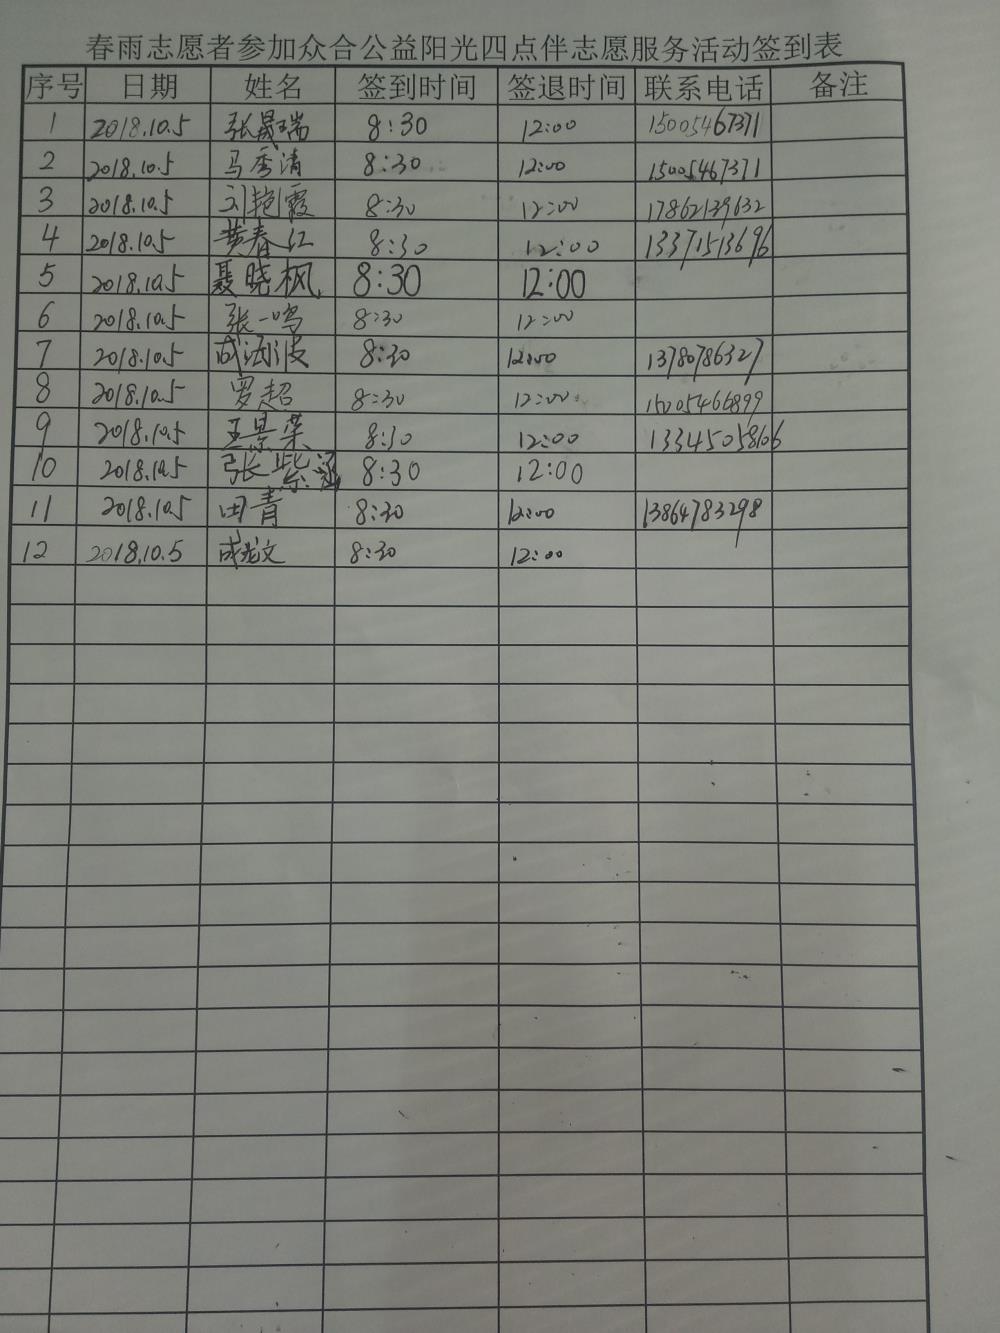 春雨志愿者参加众合公益阳光四点伴志愿服务活动签到表
序号 日期 姓名 签到时间 签退时间 联系电话 备注
1 2018.10.5 张晟瑞 8:30 12:00 15005467371
2 2018.10.5 马秀清 8:30 12:00 15005467371
3 2018.10.5 刘艳霞 8:30 12:00 17862139632
4 2018.10.5 黄春红 8:30 12:00 13371513696
5 2018.10.5 聂晓枫 8:30 12:00
6 2018.10.5 张一鸣 8:30 12:00
7 2018.10.5 成海波 8:30 12:00 13780786327
8 2018.10.5 罗超 8:30 12:00 15005466899
9 2018.10.5 王景荣 8:30 12:00 13345058106
10 2018.10.5 张紫涵 8:30 12:00
11 2018.10.5 田青 8:30 12:00 13864783298
12 2018.10.5 8:30 12:00